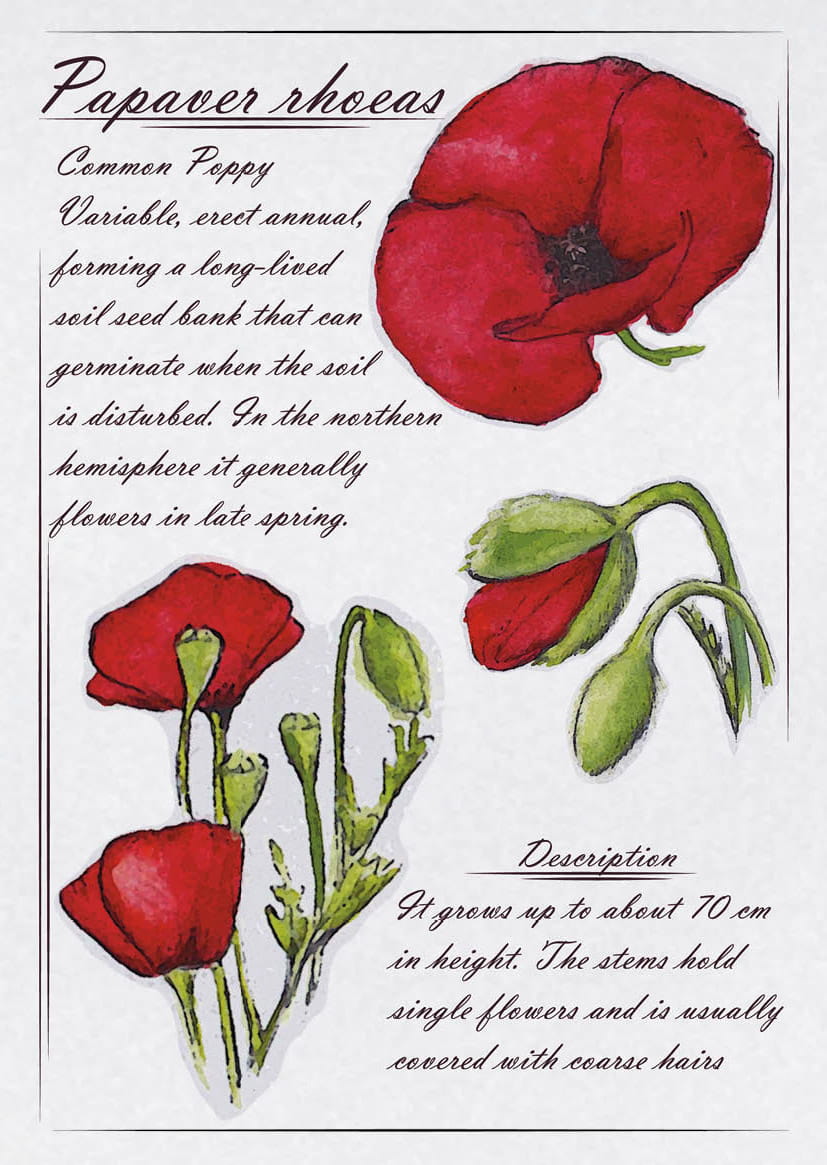 Papaver rhoeas
Common Poppy
Variable, erect annual,
forming a long-lived
soil seed bank that can
germinate when the soil
is disturbed. In the northern
hemisphere it generally
flowers in late spring.
Description
It grows up to about 70 cm
in height. The stems hold
single flowers and is usually
covered with coarse hairs